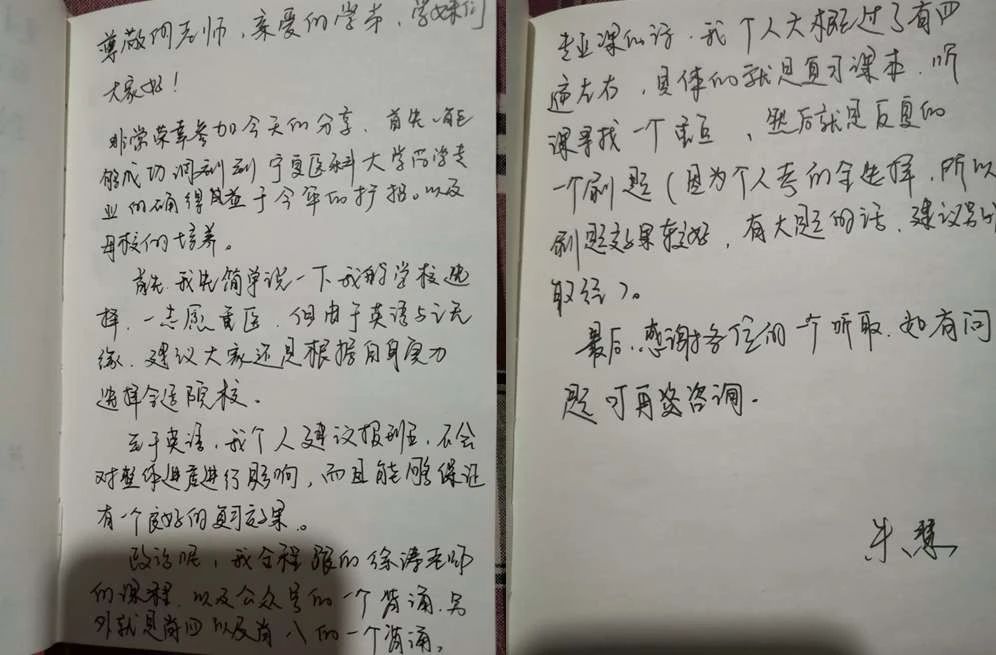 尊敬的老师，亲爱的学弟，学妹们
大家好！
非常荣幸参加今天的分享，首先，能
够成功调剂到宁夏医科大学药学专
业的确得益于今年的扩招。以及
母校的培养。
首先我先简单说一下我的学校选
择，一志愿重医，但由于英语与之无
缘，建议大家还是根据自身实力
选择合适院校。
至于英语，我个人建议报班，不会
对整体进度进行影响，而且能够保证
有一个良好的复习效果。
政治呢，我全程跟的徐涛老师
的课程，以及公众号的一个背诵，另
外就是肖四以及肖八的一个背诵，
专业课的话，我个人大概过了有四
遍左右，具体的就是复习课本，听
课寻找一个重点，然后就是反复的
一个刷题（因为个人考的全选择，所以
刷题效果较好，有大题的话，建议另外
取经）。
最后，感谢各位的一个听取，如有问
题可再咨询。
朱慧